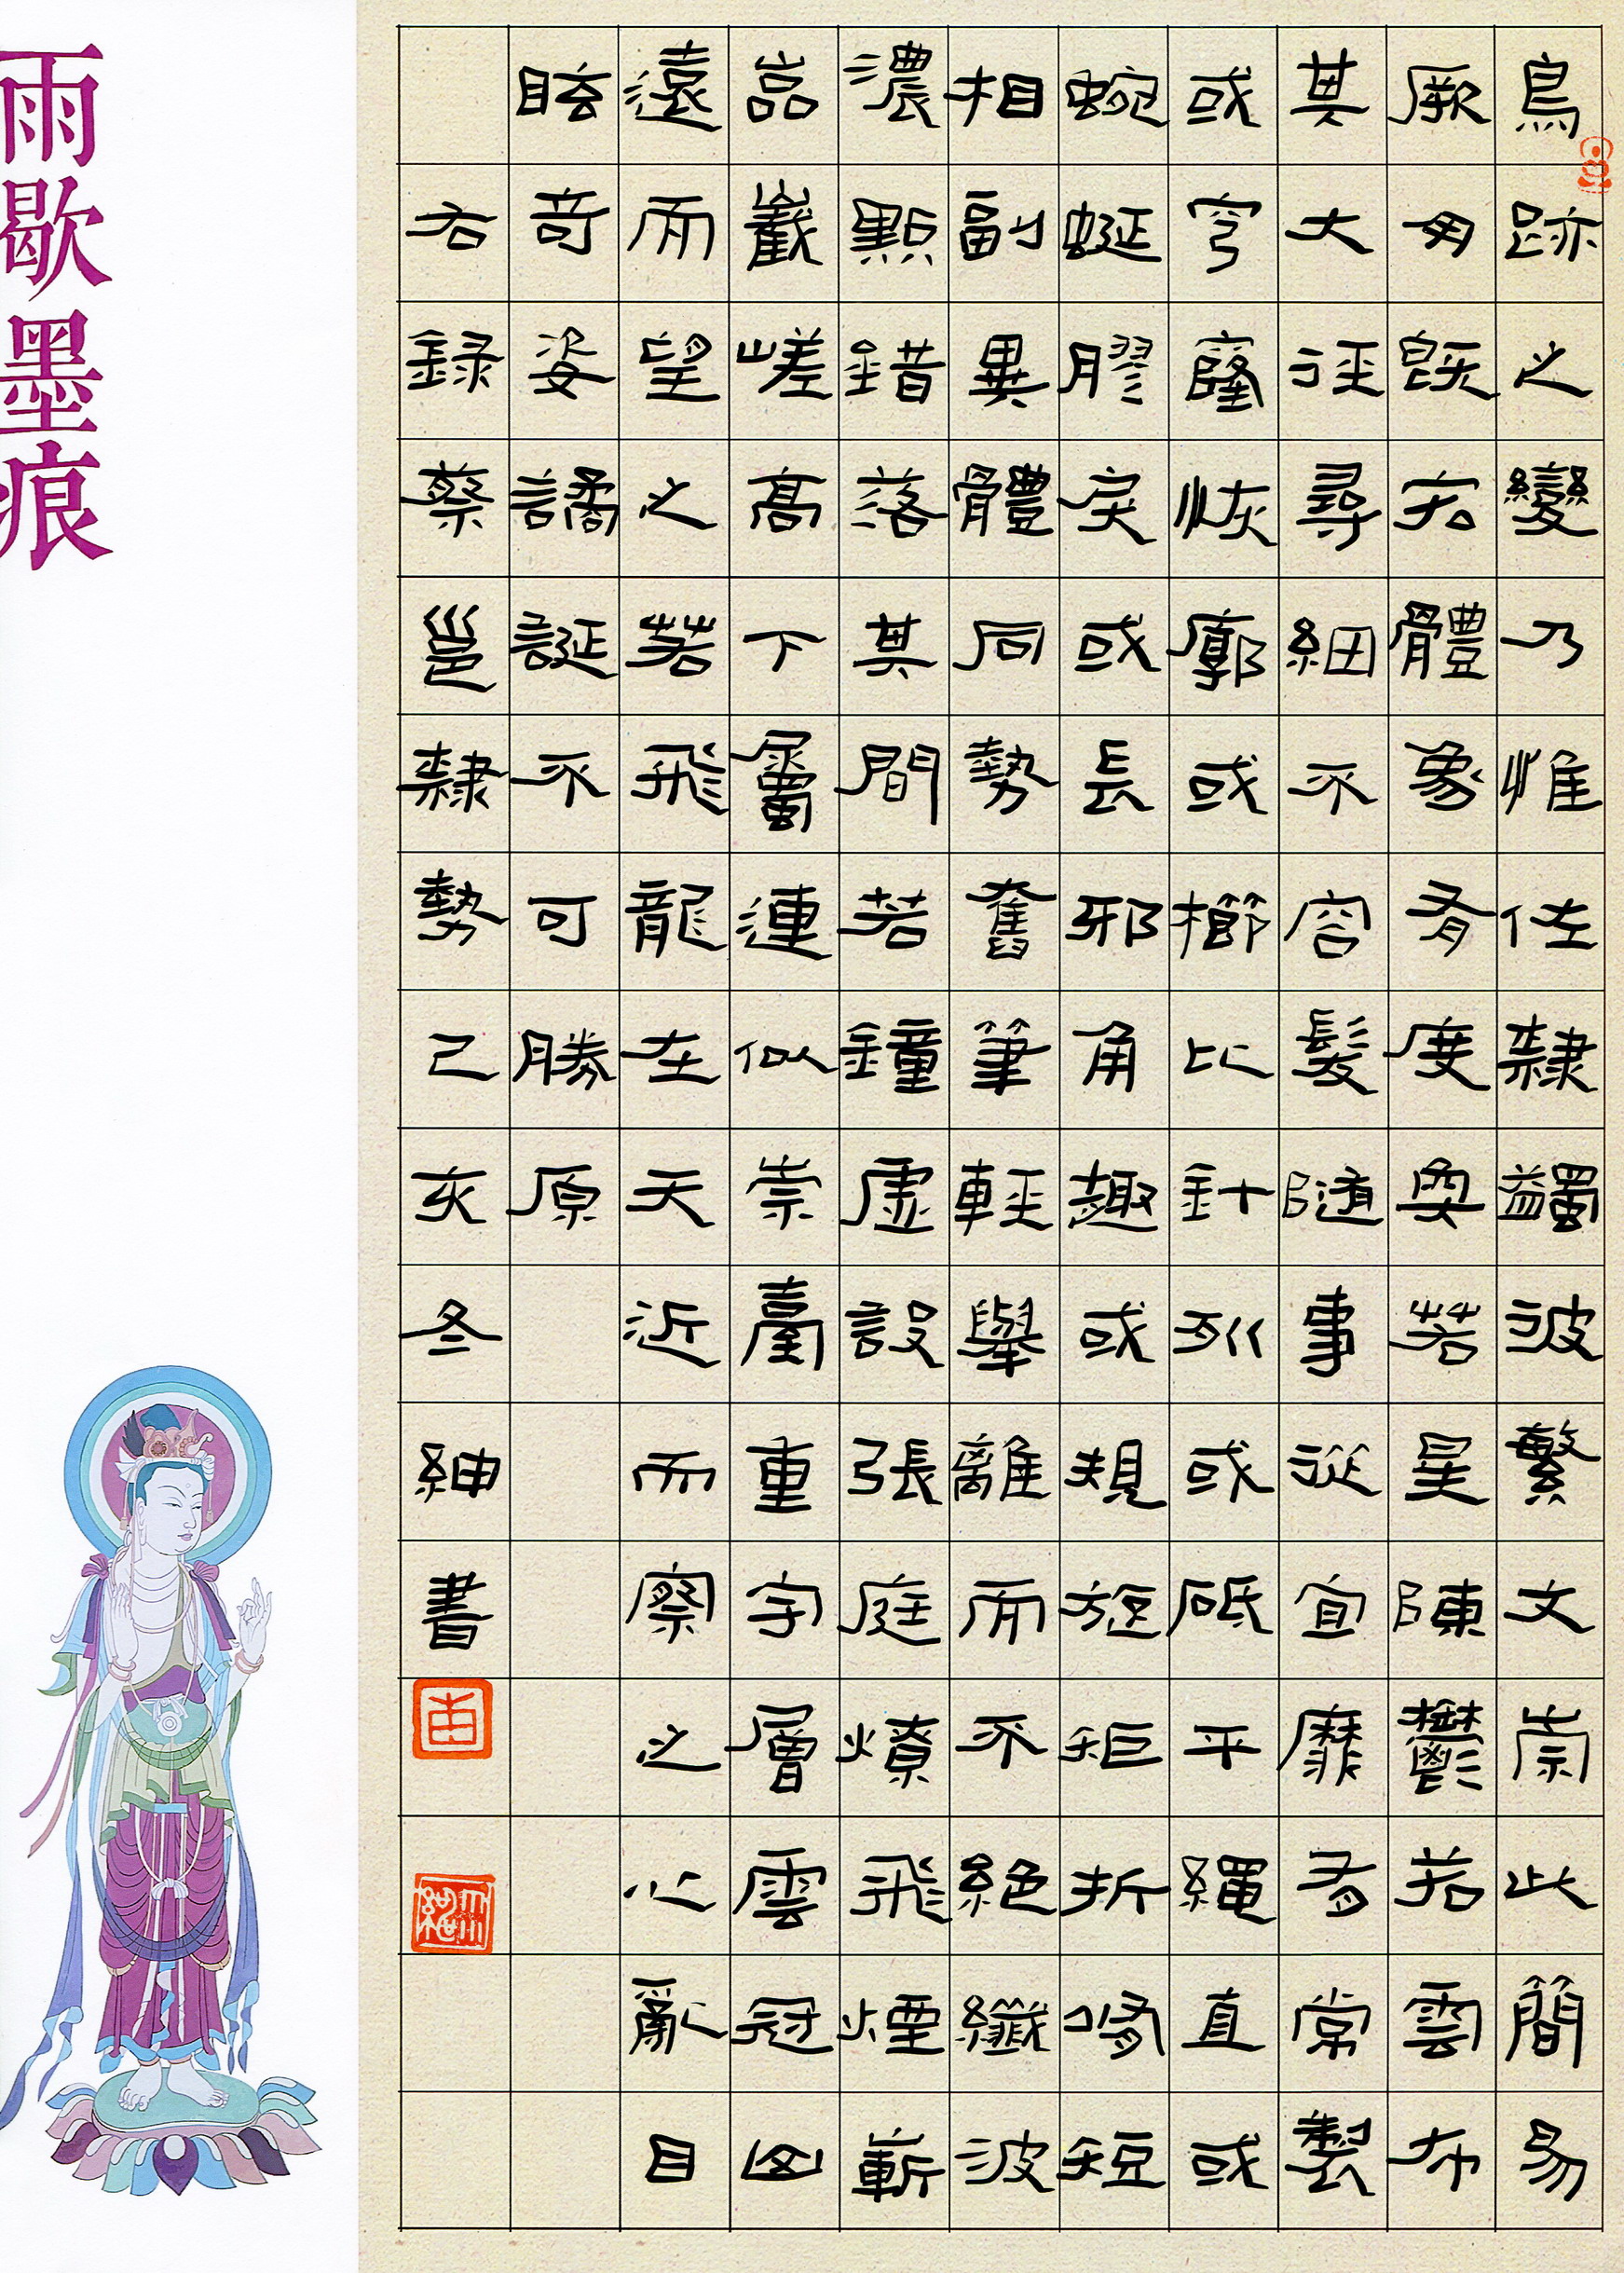 鳥跡之變乃惟佐隸蠲彼繁文崇此簡易
厥用既弘體象有度奐若星陳鬱若雲布
其大徑尋細不容髮隨事從宜靡有常製
或穹窿恢廓或櫛比針列或砥平繩直或
蜿蜒膠戾或長邪角趣或規旋矩折脩短
相副異體同勢奮筆輕舉離而不絕纖波
濃點錯落其間若鐘虛設張庭燎飛煙嶄
嵒嶻嵯高下屬連似崇臺重宇層雲冠山
遠而望之若飛龍在天近而察之心亂目
眩奇姿譎誕不可勝原
右錄蔡邕隸勢己亥冬紳書
雨歇墨痕